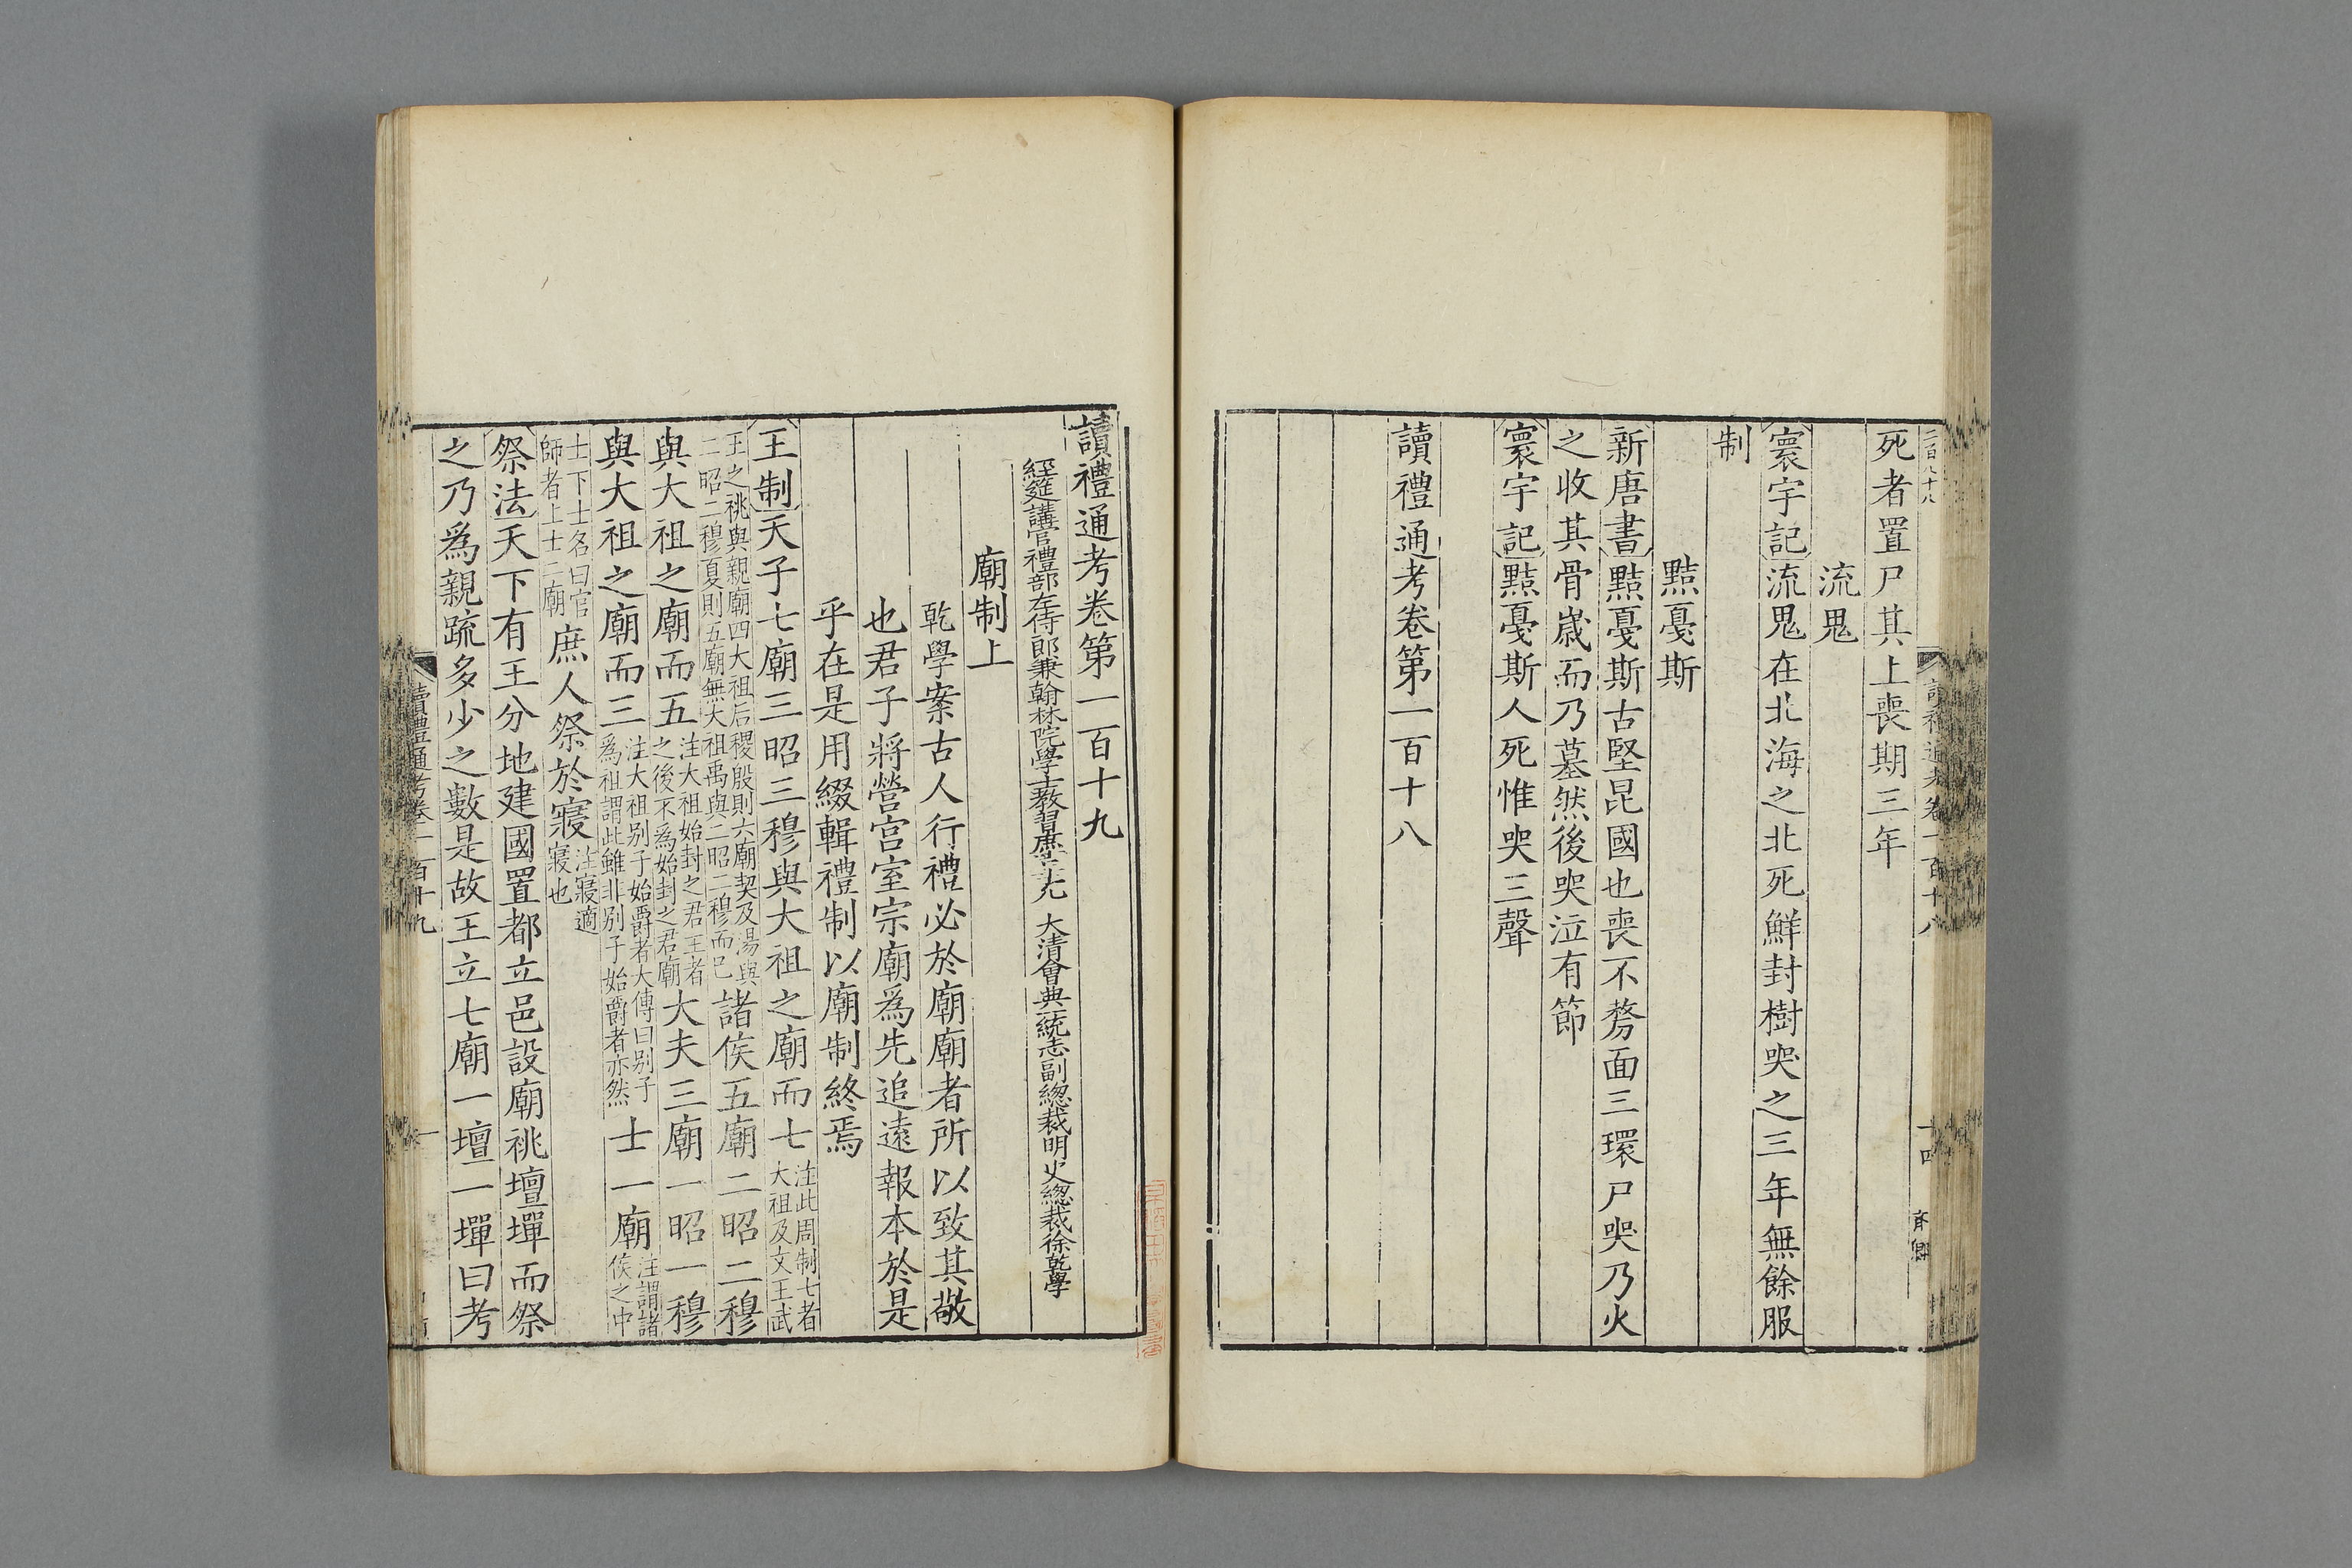 二百八十八
死者置尸其上喪期三年
流鬼
寰宇記流鬼在北海之北死鮮封樹哭之三年無餘服
制
黠戞斯
新唐書黠戞斯古堅昆國也喪不剺面三環尸哭乃火
之收其骨歲而乃墓然後哭泣有節
寰宇記黠戞斯人死惟哭三聲
讀禮通考卷第一百十八
讀禮通考卷第一百十九
經筵講官禮部左侍郎兼翰林院學士教習庶吉士充 大清會典一統志副總裁明史總裁徐乾學
廟制上
乾學案古人行禮必於廟廟者所以致其敬
也君子將營宮室宗廟爲先追遠報本於是
乎在是用綴輯禮制以廟制終焉
王制天子七廟三昭三穆與大祖之廟而七注此周制七者大祖及文王武
王之祧與親廟四大祖后稷殷則六廟契及湯與二昭二穆夏則五廟無大祖禹與二昭二穆而已諸侯五廟二昭二穆
與大祖之廟而五注大祖始封之君王者之後不爲始封之君廟大夫三廟一昭一穆
與大祖之廟而三注大祖別子始爵者大傳曰別子爲祖謂此雖非別子始爵者亦然士一廟注謂諸侯之中
士下士名曰官師者上士二廟庶人祭於寢注寢適寢也
祭法天下有王分地建國置都立邑設廟祧壇墠而祭
之乃爲親疏多少之數是故王立七廟一壇一墠曰考
讀禮通考卷一百十九
一